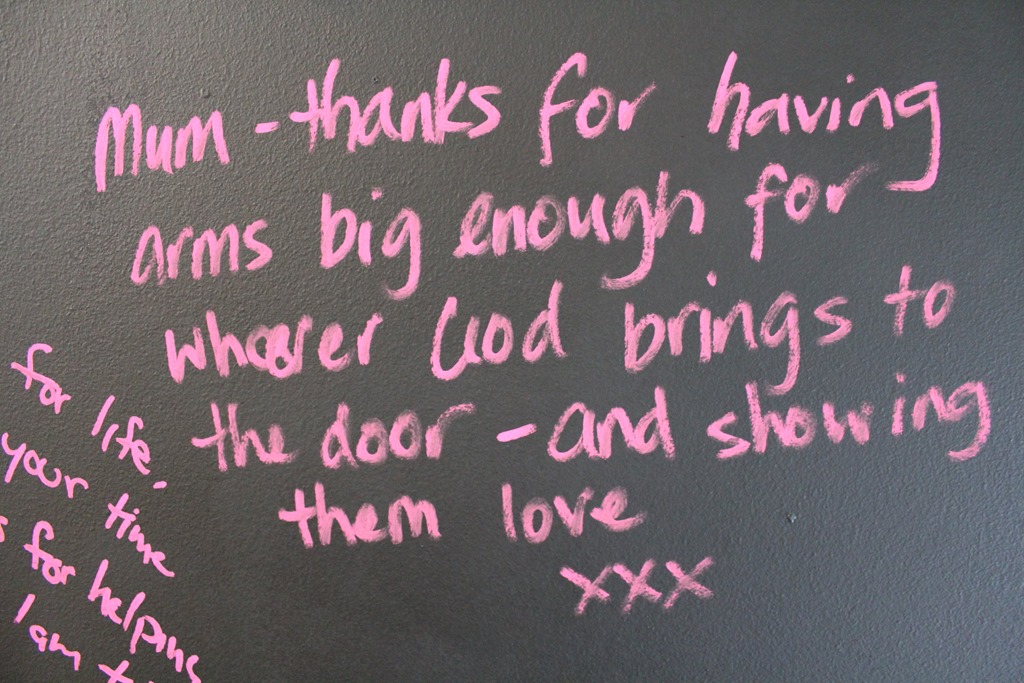 Mum - thanks for having
arms big enough for
whoever God brings to
the door - and showing
them love
xxx
for life.
your time
for helping
I am